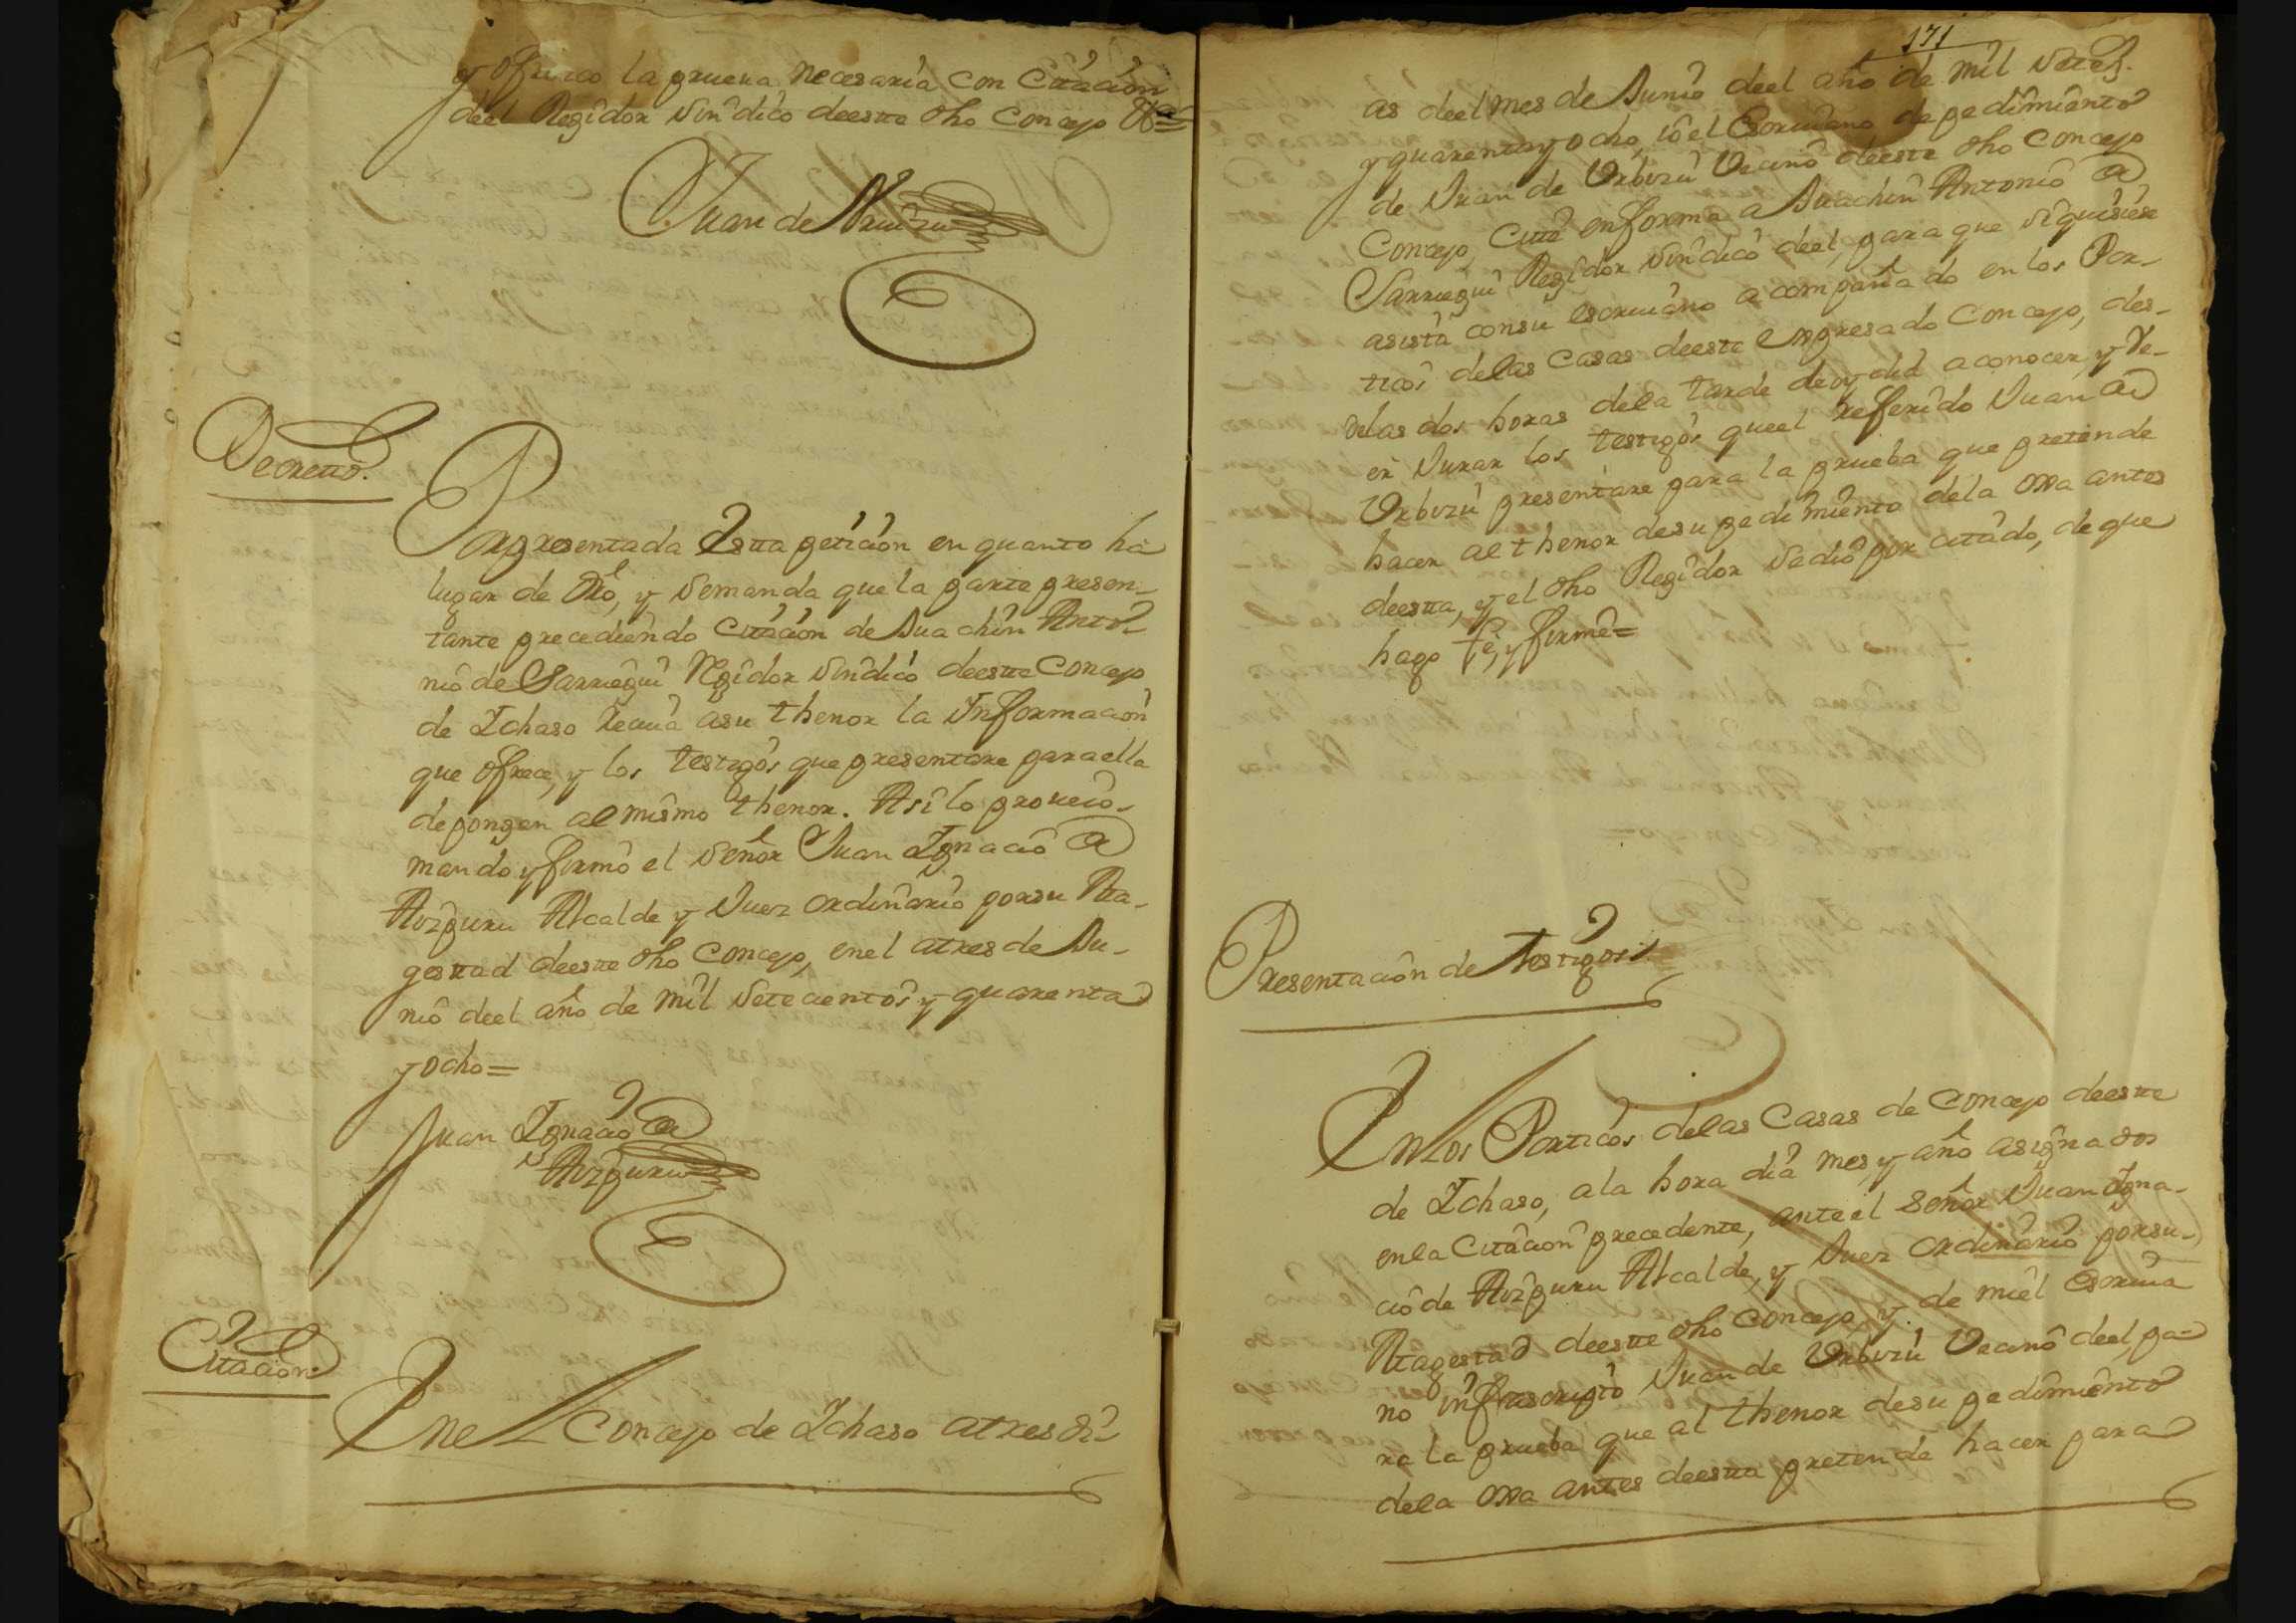 y ofrezco la prueua necesaria con Citaçion
deel Regidor Sindico deeste dho Concejo &ª=
Juan de Uruuzu
Decretto.
Por presentada Estta peticion en quanto ha
lugar de dro, y Semanda que la parte presen-
tante precediendo Citaçion de Juachin Anto-
nio de Sarriegui Regidor Sindico deestte Concejo
de Ichaso Reciua asu thenor la Informacion
que ofrece, y los testigos que presentare para ella
depongan al mismo thenor. Asi lo proueio-
mando y firmo el Señor Juan Ignacio de
Aizpuru Alcalde y Juez ordinario por su Ma-
gestad deestte dho Concejo, en el atres de Ju-
nio deel año de mil Setecientos y quarenta
y ocho=
Juan Ignacio de
Aizpuru
Citacion.
En el Concejo de Ichaso atres di-
171
as deel mes de Junio deel año de mil Setez.
y quarenta y ocho, io el Escriuano de pedimiento
de Juan de Urbizu Vecino deeste dho Concejo
Concejo, Citte en forma a Juachin Antonio de
Sarriegui Regidor Sindico deel, para que Siquisiese
asista consu escriuano acompañado en los Por-
ticos delas Casas deeste expresado Concejo, des-
delas dos horas dela tarde deoy dia aconocer, y Ve-
er Jurar los testigos queel referido Juan de
Urbizu presentare para la prueba que pretende
hacer al thenor desu pedimiento dela oxa antes
deestta, y el dho Regidor Sedio por citado, de que
hago fe, y firme=
Presentacion de Testigos
En los Porticos delas Casas de Concejo deestte
de Ichaso, ala hora dia mes, y año asignados
en la Citacion precedente, ante el Señor Juan Igna-
cio de Aizpuru Alcalde, y Juez ordinario por su-
Magestad deestte dho Concejo, y de mi el Escriua
no infrascripto Juan de Urbizu Vecino deel, pa-
ra la prueba que al thenor desu pedimiento
dela oxa antes deestta pretende hacer para